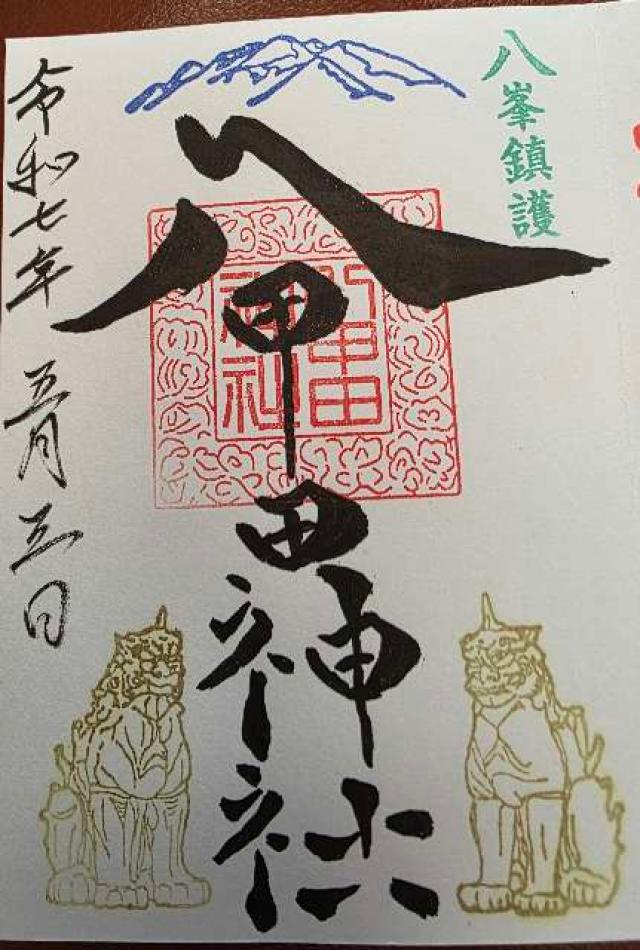 八峯鎮護
八甲田神社
八甲田
神社
令和七年 五月五日